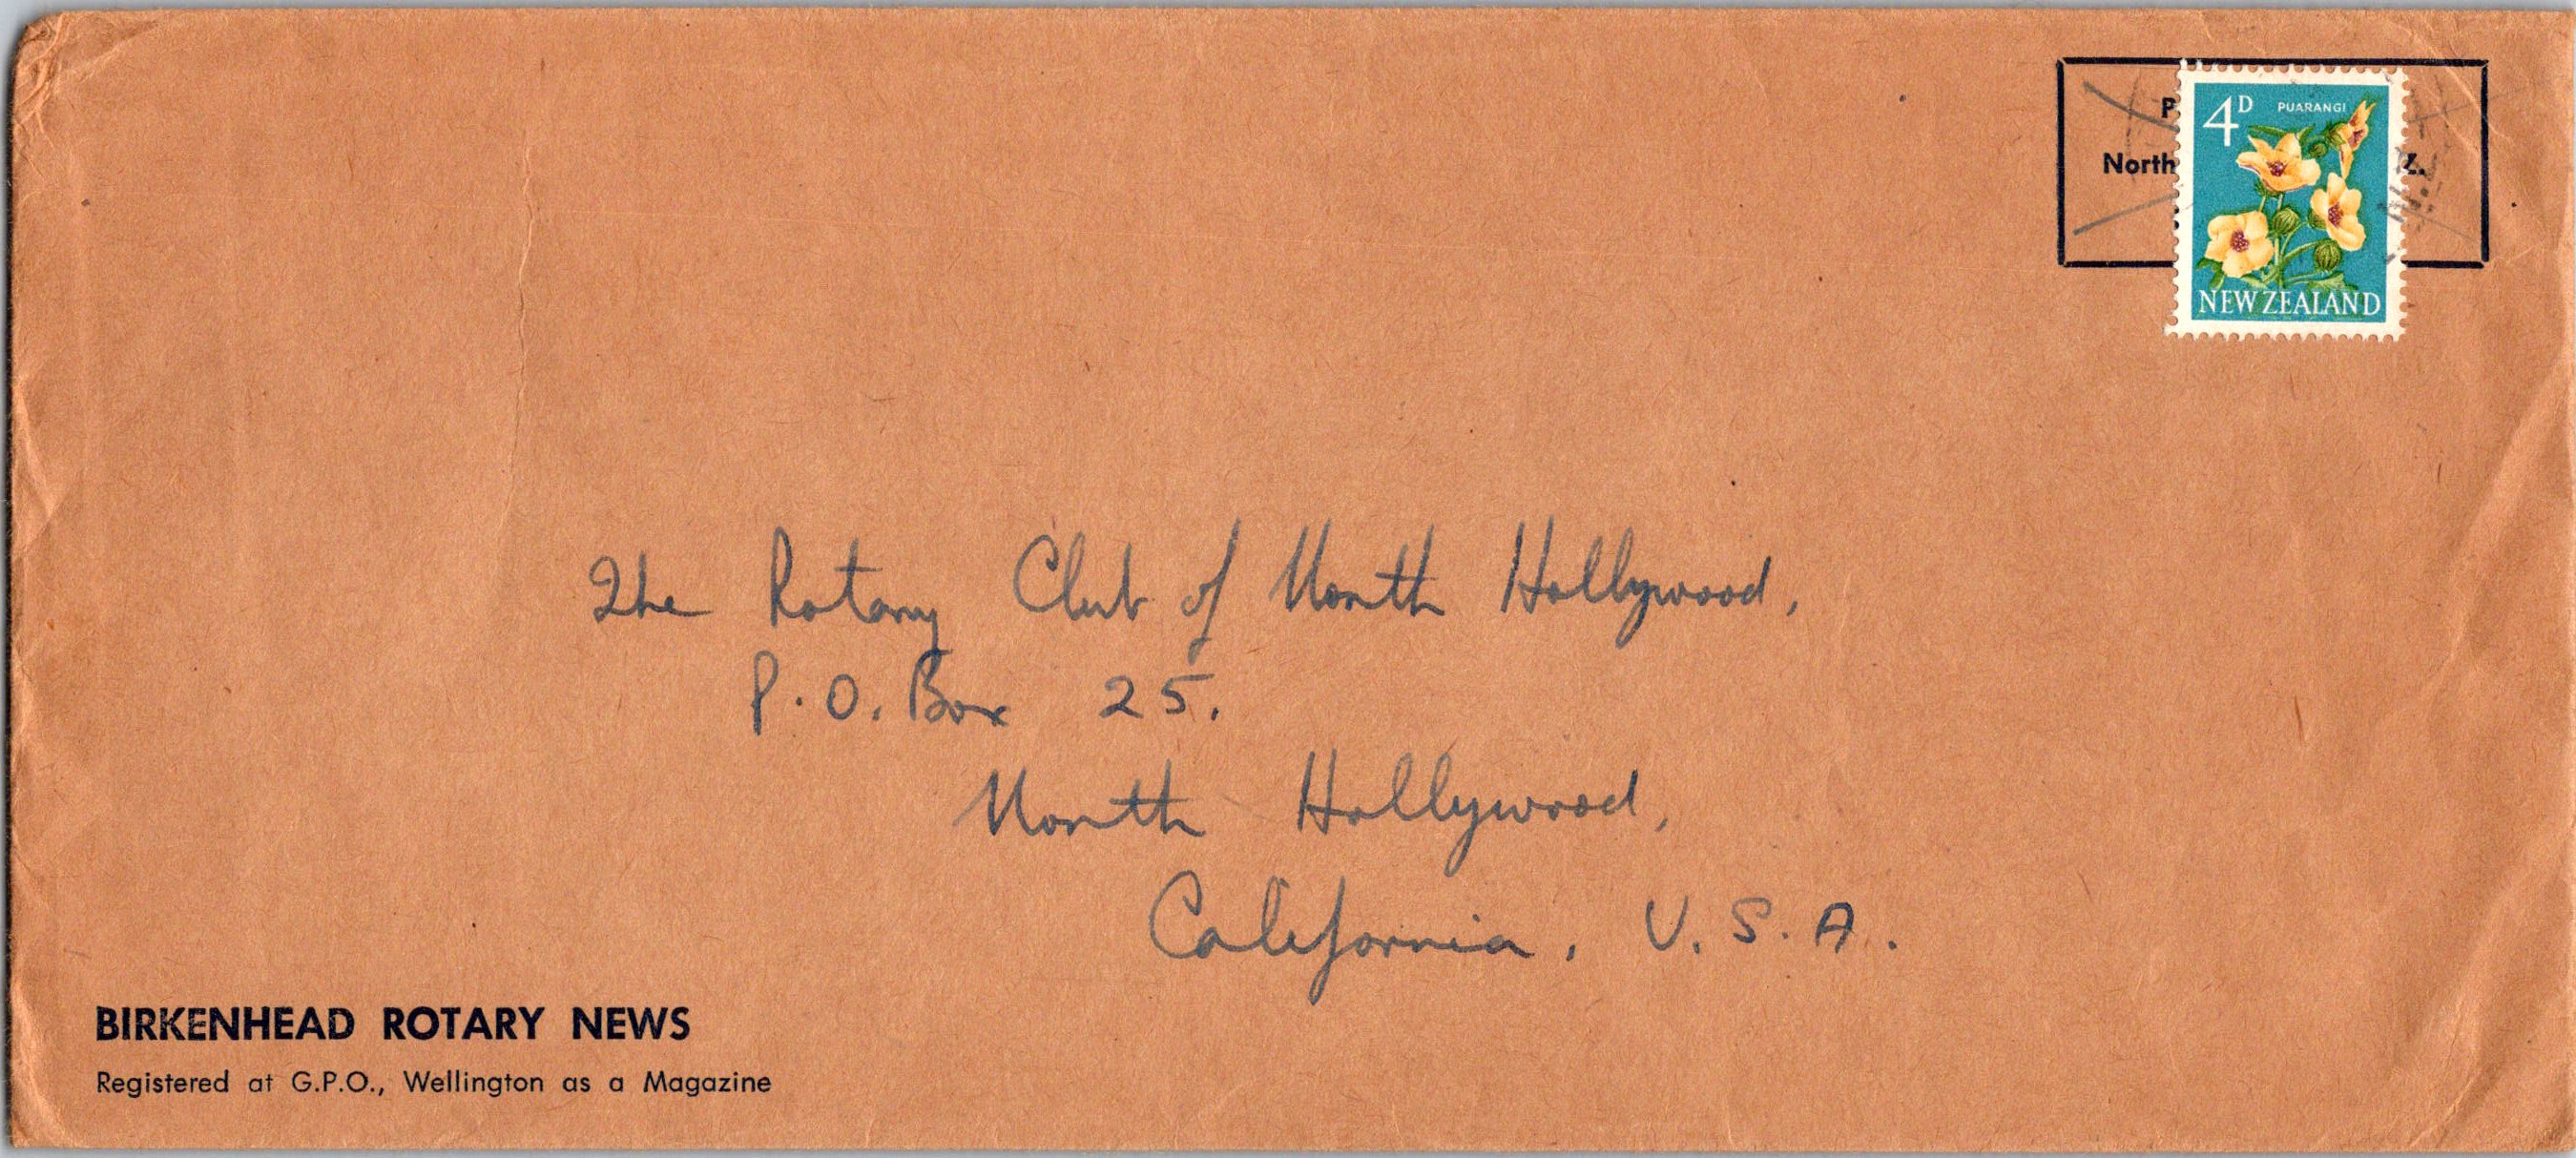 P
North Z.
4D PUARANGI
NEW ZEALAND
The Rotary Club of North Hollywood,
P.O. Box 25.
North Hollywood,
California, U.S.A.
BIRKENHEAD ROTARY NEWS
Registered at G.P.O., Wellington as a Magazine